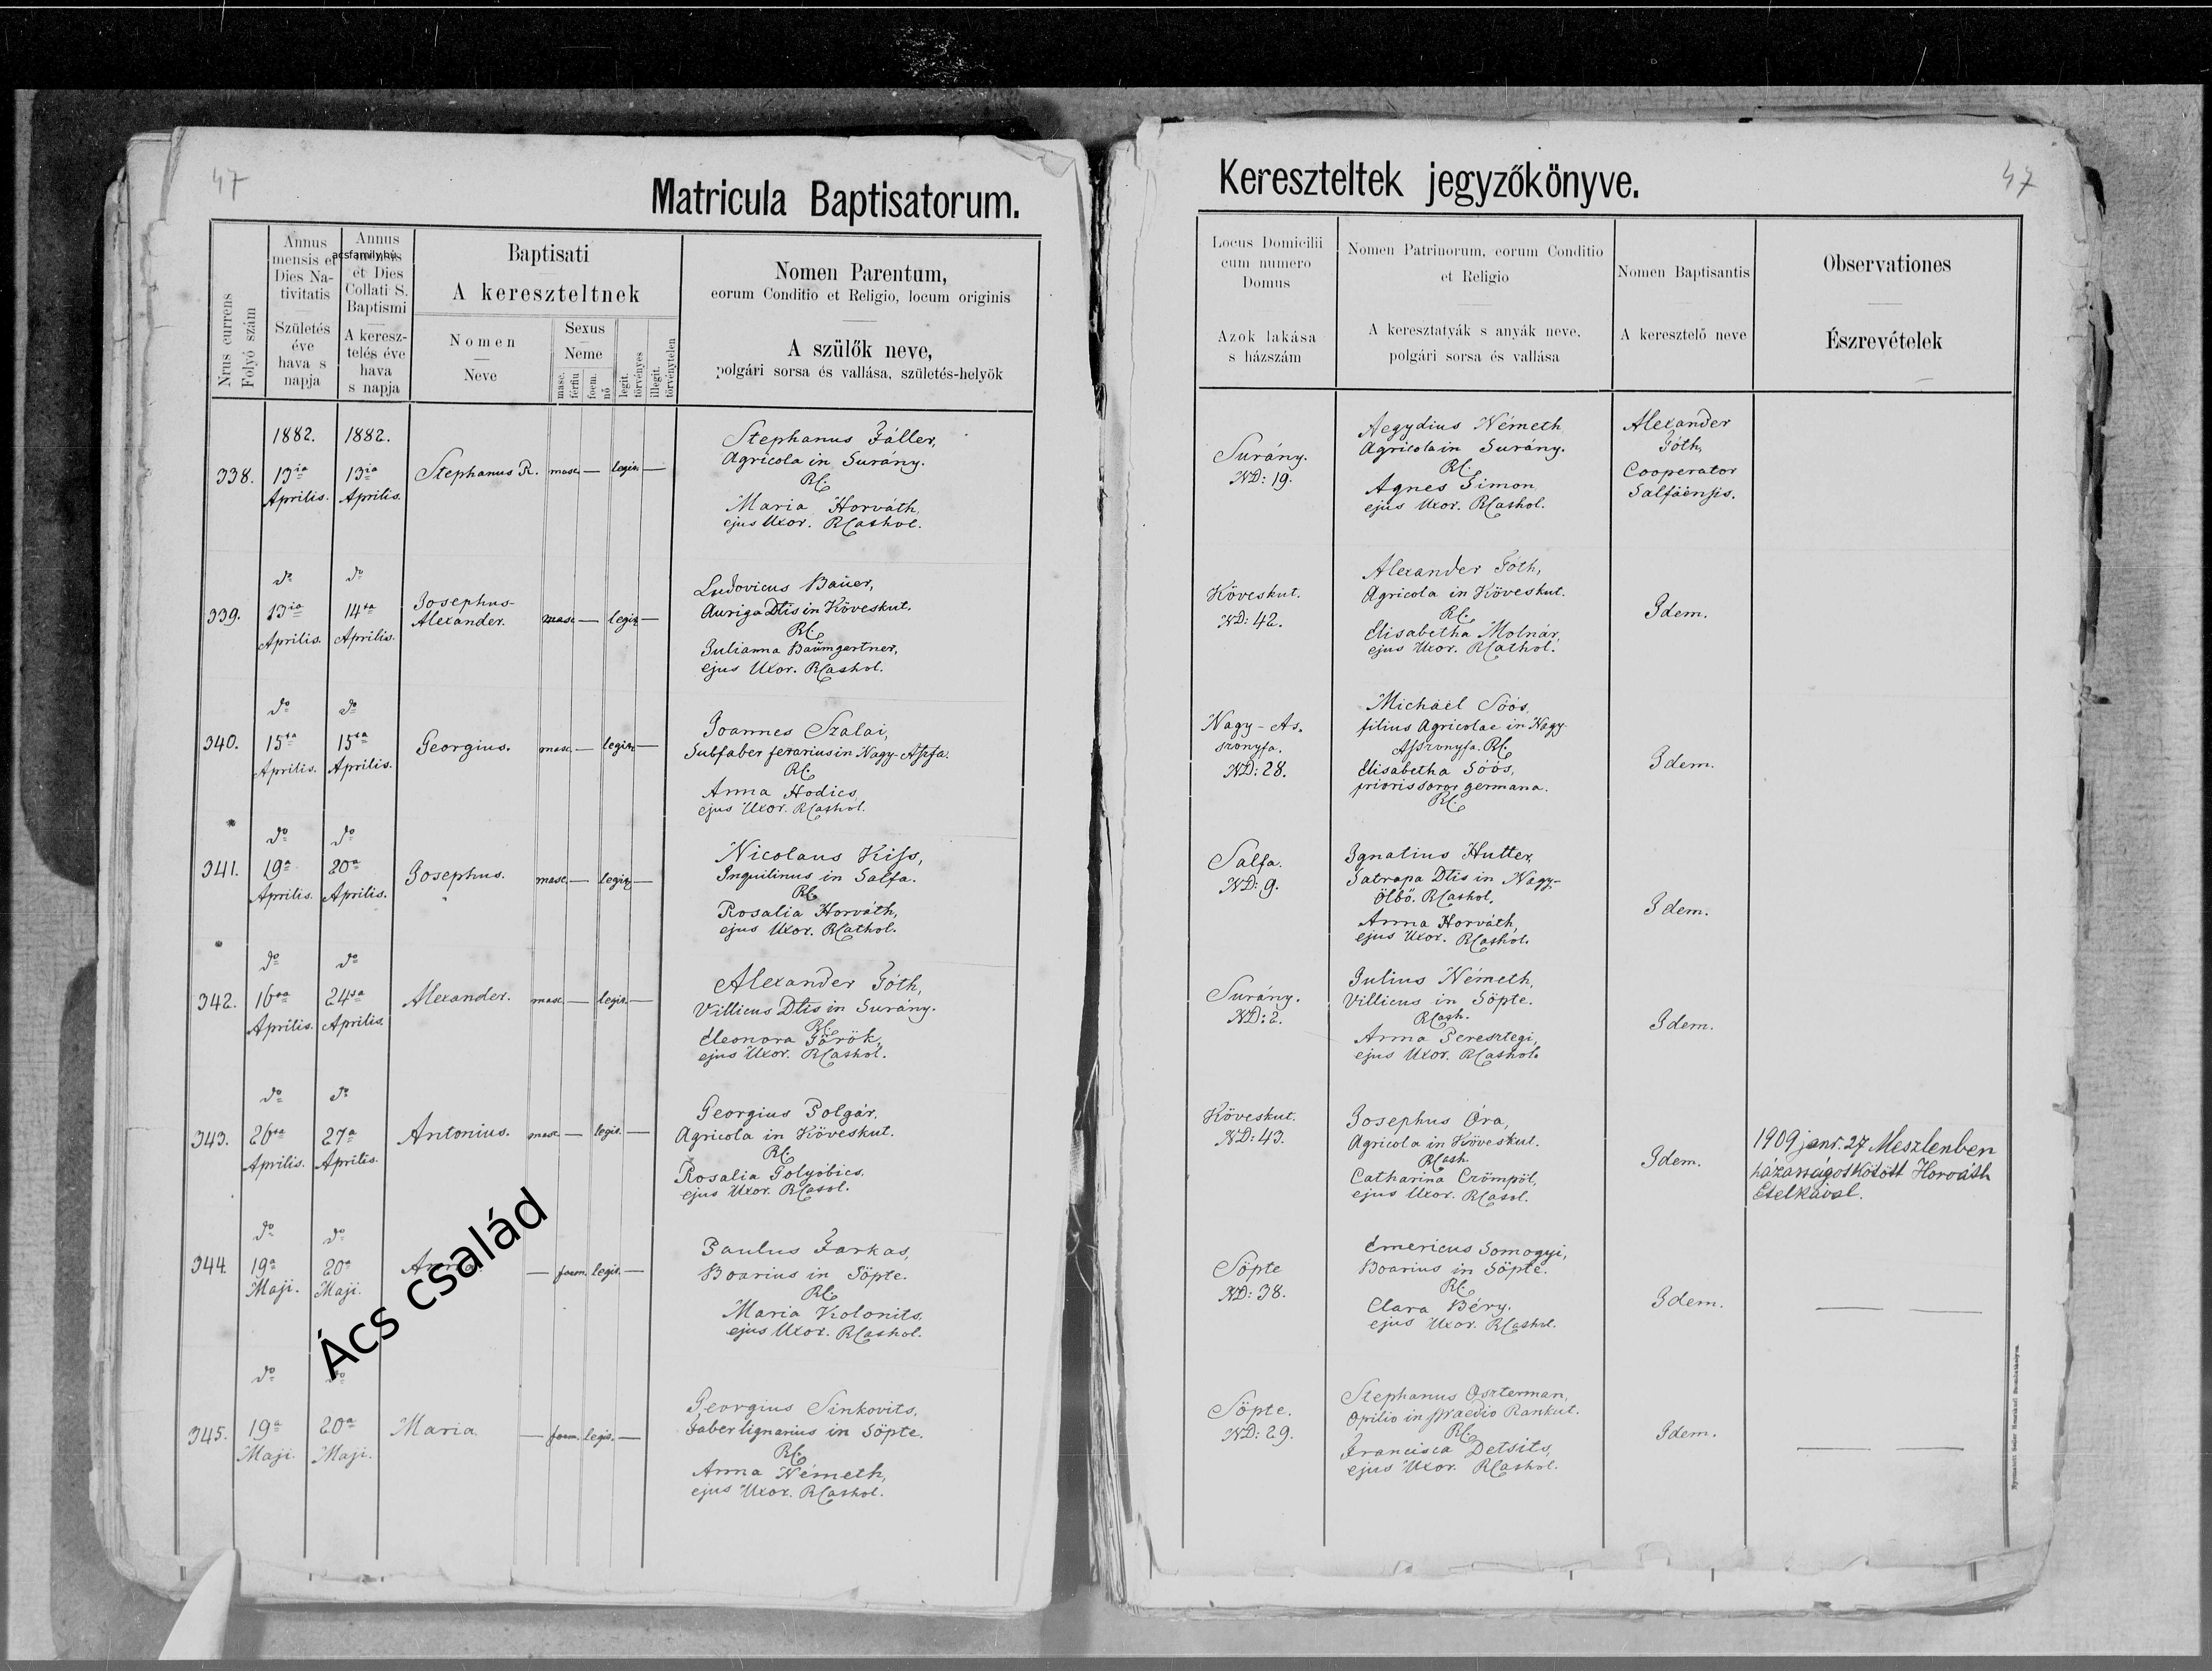 47
Matricula Baptisatorum.
Nrus currens
Folyó szám
Annus
mensis et
Dies Na-
tivitatis
Születés
éve
hava s
napja
Annus
mensis
et Dies
Collati S.
Baptismi
A keresz-
telés éve
hava
s napja
acsfamily.hu
Baptisati
A kereszteltnek
Nomen
Neve
Sexus
Neme
masc.
férfiu
foem.
nő
legit.
törvényes
illegit.
törvénytelen
Nomen Parentum,
eorum Conditio et Religio, locum originis
A szülők neve,
polgári sorsa és vallása, születés-helyök
338.
1882.
13ia
Aprilis.
1882.
13ia
Aprilis.
Stephanus R.
masc. — legit. —
Stephanus Fáller,
Agricola in Surány.
RC
Maria Horváth,
ejus Uxor. RCathol.
339.
do
13ia
Aprilis.
do
14ta
Aprilis.
Josephus-
Alexander.
masc. — legit. —
Ludovicus Bauer,
Auriga Dtis in Köveskut.
RC
Julianna Baumgartner,
ejus Uxor. RCathol.
340.
do
15ta
Aprilis.
do
15ta
Aprilis.
Georgius.
masc. — legit. —
Joannes Szalai,
Subfaber ferarius in Nagy-Aszfa.
RC
Anna Hodics,
ejus Uxor. RCathol.
*
341.
do
19a
Aprilis.
do
20a
Aprilis.
Josephus.
masc. — legit. —
Nicolaus Kiss,
Inquilinus in Salfa.
RC
Rosalia Horváth,
ejus Uxor. RCathol.
*
342.
do
16ta
Aprilis.
do
24ta
Aprilis.
Alexander.
masc. — legit. —
Alexander Tóth,
Villicus Dtis in Surány.
RC
Eleonora Török,
ejus Uxor. RCathol.
343.
do
26ta
Aprilis.
do
27a
Aprilis.
Antonius.
masc. — legit. —
Georgius Polgár,
Agricola in Köveskut.
RC
Rosalia Golyobics,
ejus Uxor. RCatol.
344.
do
19a
Maji.
do
20a
Maji.
Anna.
— foem. legit. —
Paulus Farkas,
Boarius in Söpte.
RC
Maria Kolonits,
ejus Uxor. RCathol.
Ács család
345.
do
19a
Maji.
do
20a
Maji.
Maria.
— foem. legit. —
Georgius Sinkovits,
Faber lignarius in Söpte.
RC
Anna Németh,
ejus Uxor. RCathol.
Kereszteltek jegyzőkönyve.
47
Locus Domicilii
cum numero
Domus
Azok lakása
s házszám
Nomen Patrinorum, eorum Conditio
et Religio
A keresztatyák s anyák neve,
polgári sorsa és vallása
Nomen Baptisantis
A keresztelő neve
Observationes
Észrevételek
Surány.
ND: 19.
Aegydius Németh
Agricola in Surány.
RC
Agnes Simon,
ejus Uxor. RCathol.
Alexander
Tóth,
Cooperator
Salfaensis.
Köveskut.
ND: 42.
Alexander Tóth,
Agricola in Köveskut.
RC
Elisabetha Molnár,
ejus Uxor. RCathol.
Idem.
Nagy-As.
szonyfa.
ND: 28.
Michaël Soós,
filius Agricolae in Nagy
Asszonyfa. RC
Elisabetha Soós,
prioris soror germana.
RC
Idem.
Salfa.
ND: 9.
Ignatius Hutter,
Satrapa Dtis in Nagy-
Ölbö. RCathol.
Anna Horváth,
ejus Uxor. RCathol.
Idem.
Surány.
ND: 2.
Julius Németh,
Villicus in Söpte.
RCath.
Anna Peresztegi,
ejus Uxor. RCathol.
Idem.
Köveskut.
ND: 43.
Josephus Óra,
Agricola in Köveskut.
RCath.
Catharina Czömpöl,
ejus Uxor. RCatol.
Idem.
1909 janr. 27 Meszlenben
házasságot kötött Horváth
Etelkával.
Söpte
ND: 38.
Emericus Somogyi,
Boarius in Söpte.
RC
Clara Béry,
ejus Uxor. RCathol.
Idem.
— —
Söpte.
ND: 29.
Stephanus Oszterman,
Opilio in praedio Rankut.
RC
Francisca Detsits,
ejus Uxor. RCathol.
Idem.
— —